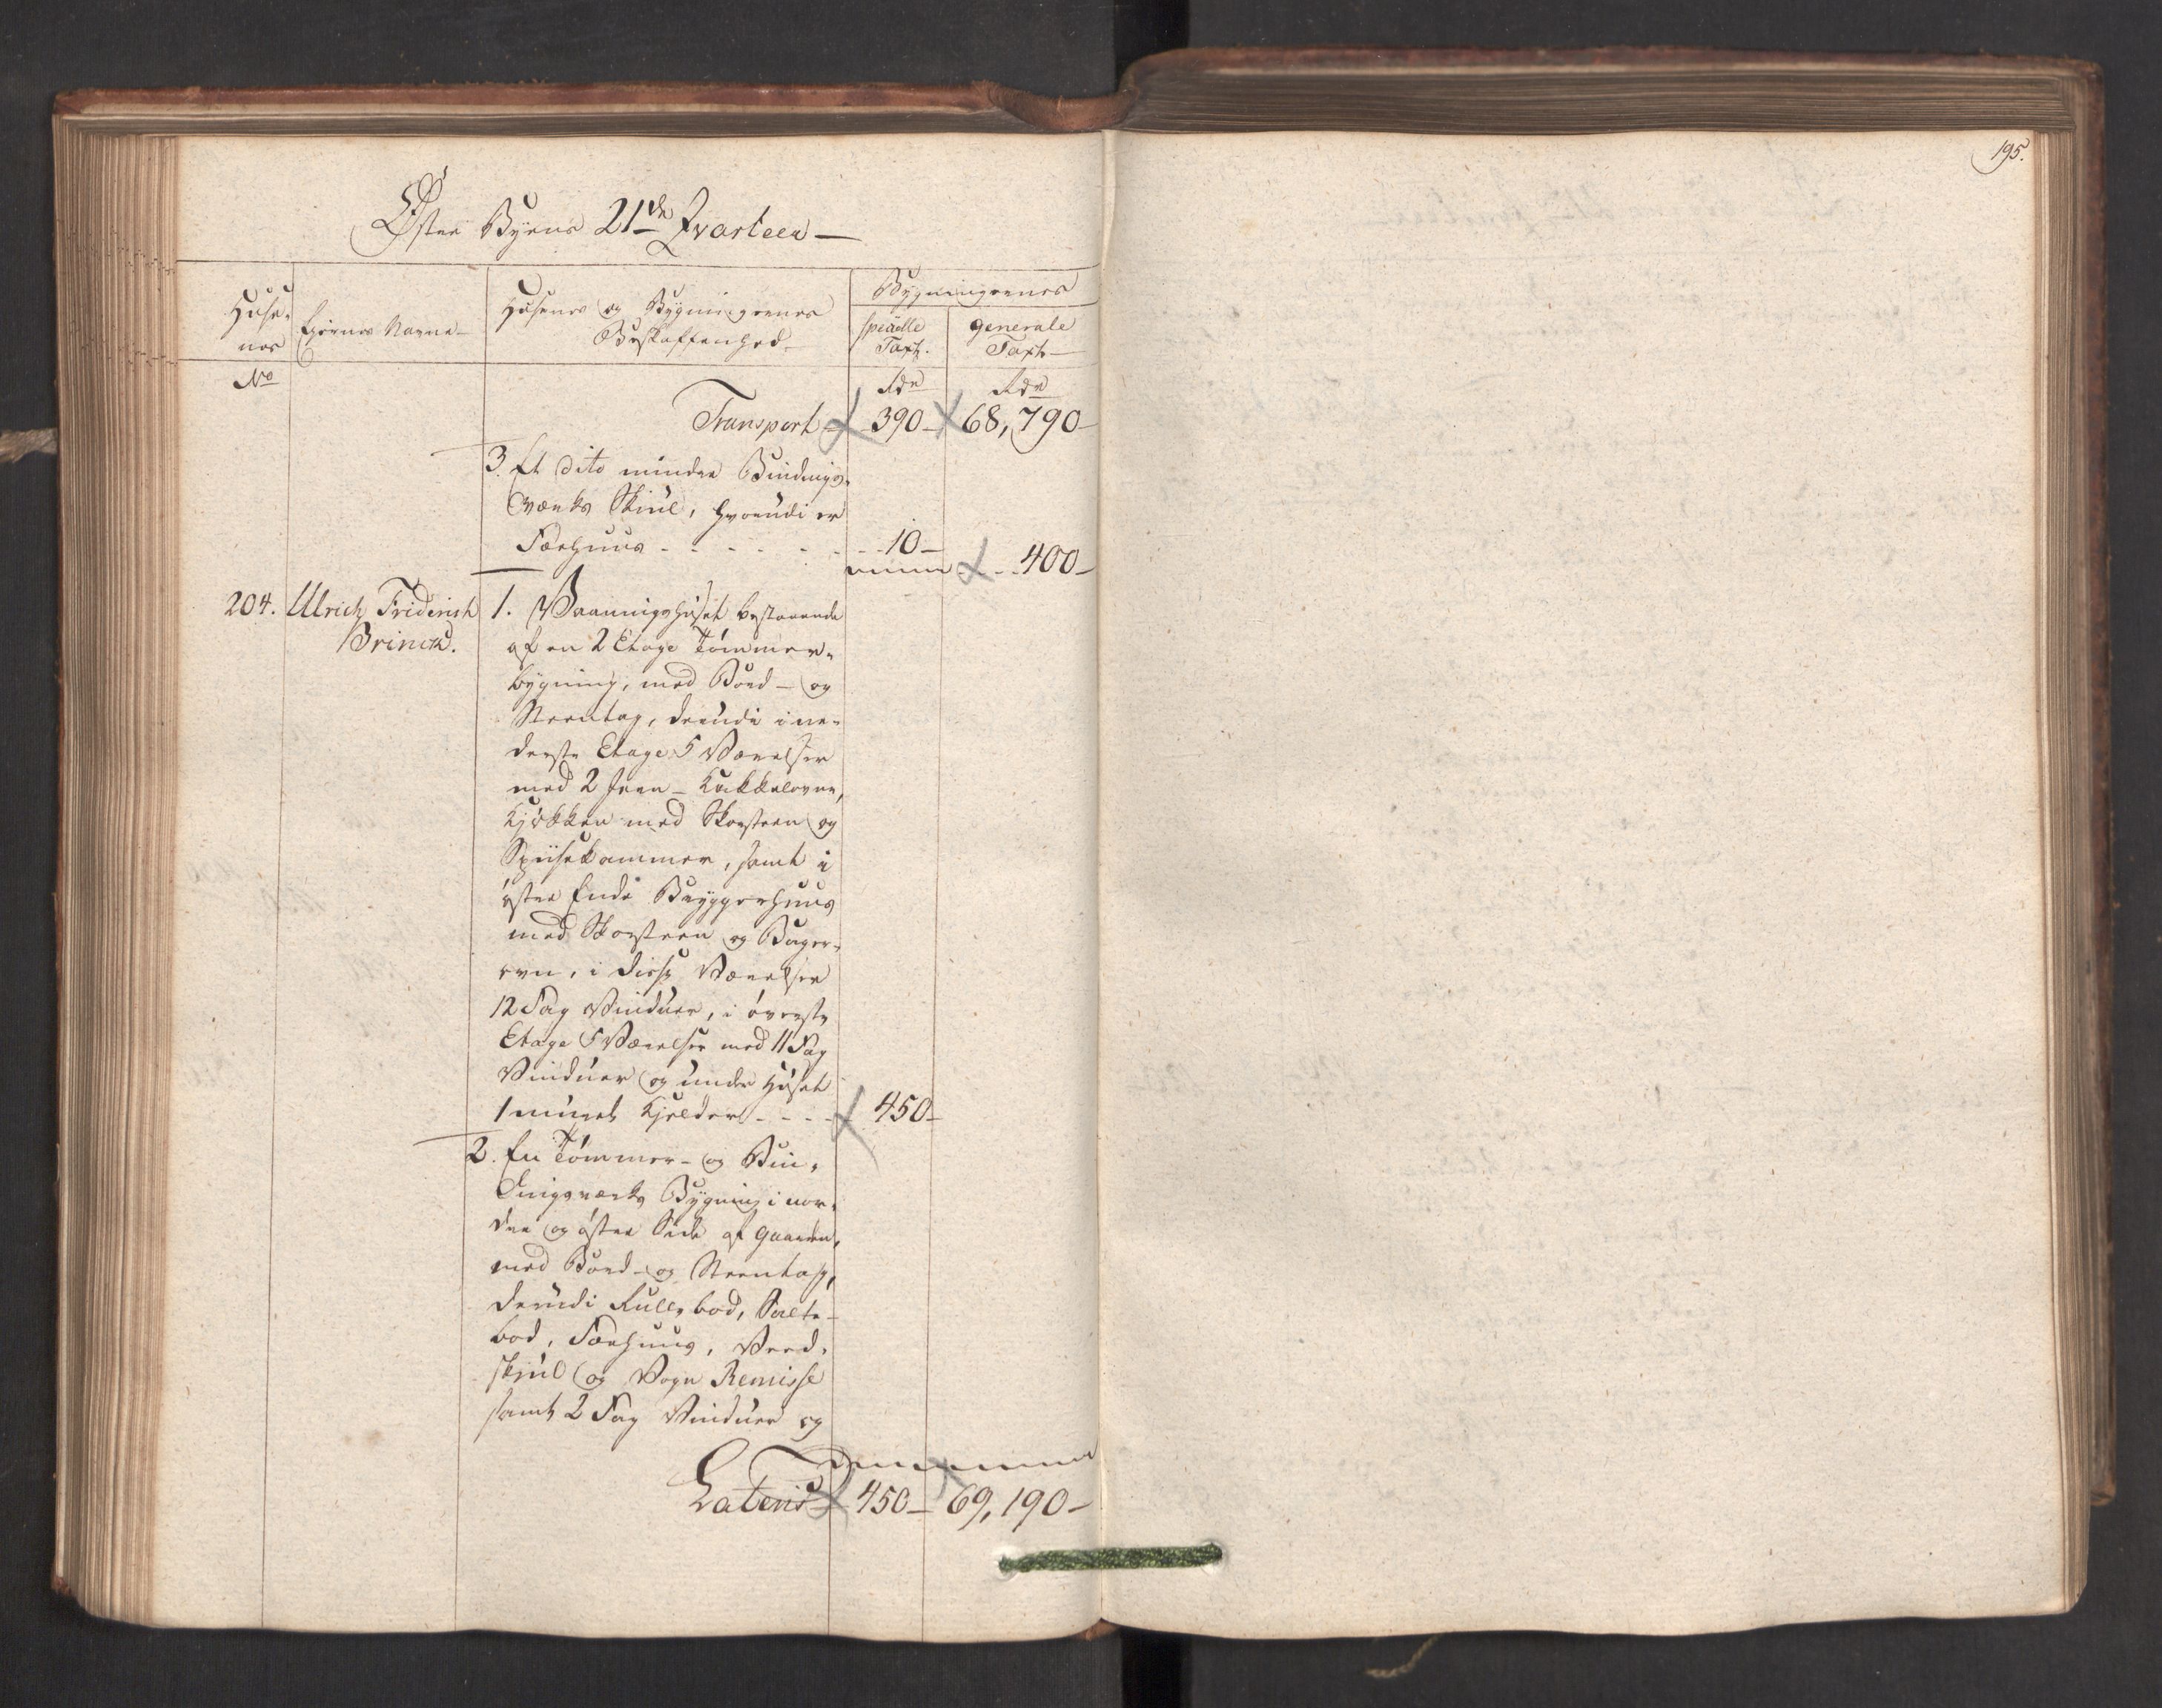 195.
Østre Byens 21de Qvarteer
Huse-
nes
Ejernes Navne
Husenes og Bygningernes
Beskaffenhed
Bygningernes
specielle
Taxt.
generale
Taxt
No
Rdr
Rdr
Transport 390 68,790
3. Et dito mindre Bindings-
værks Skiul, hvorudi er
Færhuus - - - - - 10
400
204. Ulrich Friderich
Brinch.
1. Vaaningshuset bestaaende
af en 2 Etage Tømmer-
bygning, med Bord- og
Steentag, derudi i ne-
derste Etage 5 Værelser
med 2 Jern-Kakkelovne,
Kjøkken med Skorsteen og
Spiisekammer, samt i
østre Ende Bryggerhuus
med Skorsteen og Bager-
ovn, i disse Værelser
12 Fag Vinduer, i øverste
Etage 5 Værelser med 11 Fag
Vinduer og under Huset
1 muret Kjelder - - - - 450
2. En Tømmer- og Bin-
dingsværks Bygning i nor-
dre og østre Side af Gaarden,
med Bord- og Steentag,
derudi Rullebod, Salte-
bod, Færhuus, Veed-
skjul og Vogn Remisse
samt 2 Fag Vinduer og
Lateris 450 69,190